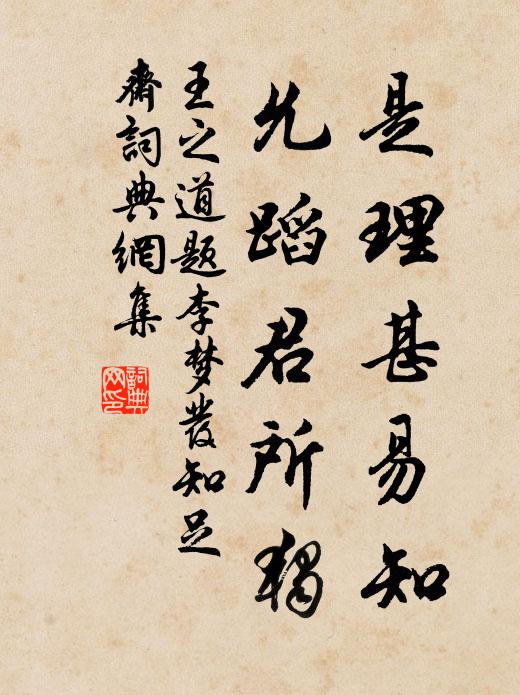 是理甚易知
允蹈君所独
王之道题李梦发知足
齋詞典網集
詞典网印